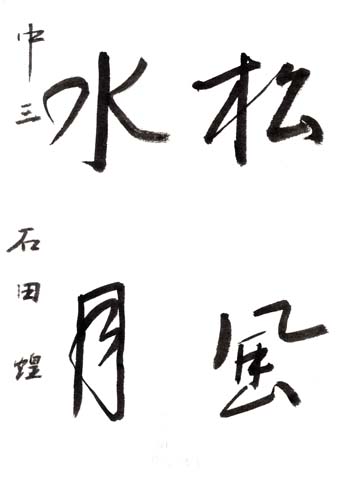 松風
水月
中三 石田 煌